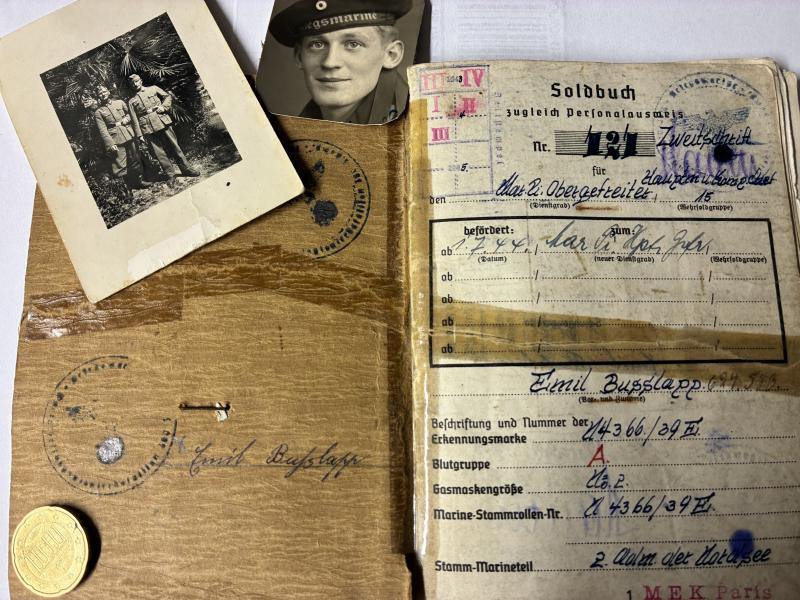 egsmarine
Emil Bußlapp
III 1943 IV
I II
III
5.
Soldbuch
zugleich Personalausweis
Nr. 121 Zweitschrift
für
den Mar. Obergefreiter 15
(Dienstgrad) (Wehrsoldgruppe)
befördert: zum:
ab 1.7.44 / Mar. Hpt. Gefr.
(Datum) (neuer Dienstgrad) (Wehrsoldgruppe)
ab /
ab /
ab /
ab /
Emil Bußlapp
(Vor- und Zuname)
Beschriftung und Nummer der
Erkennungsmarke N 4366/39 E
Blutgruppe A
Gasmaskengröße No. 2
Marine-Stammrollen-Nr. N 4366/39 E
Stamm-Marineteil 2. Adm. der Nordsee
1 MEK Paris